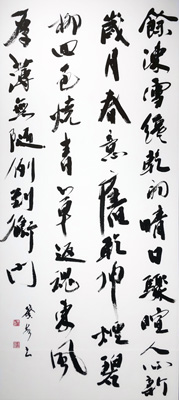 餘凍雪纔乾初晴日驟暄人心新
歲月春意舊乾坤煙碧
柳回色燒青草返魂東風
厚薄無隨例到衡門